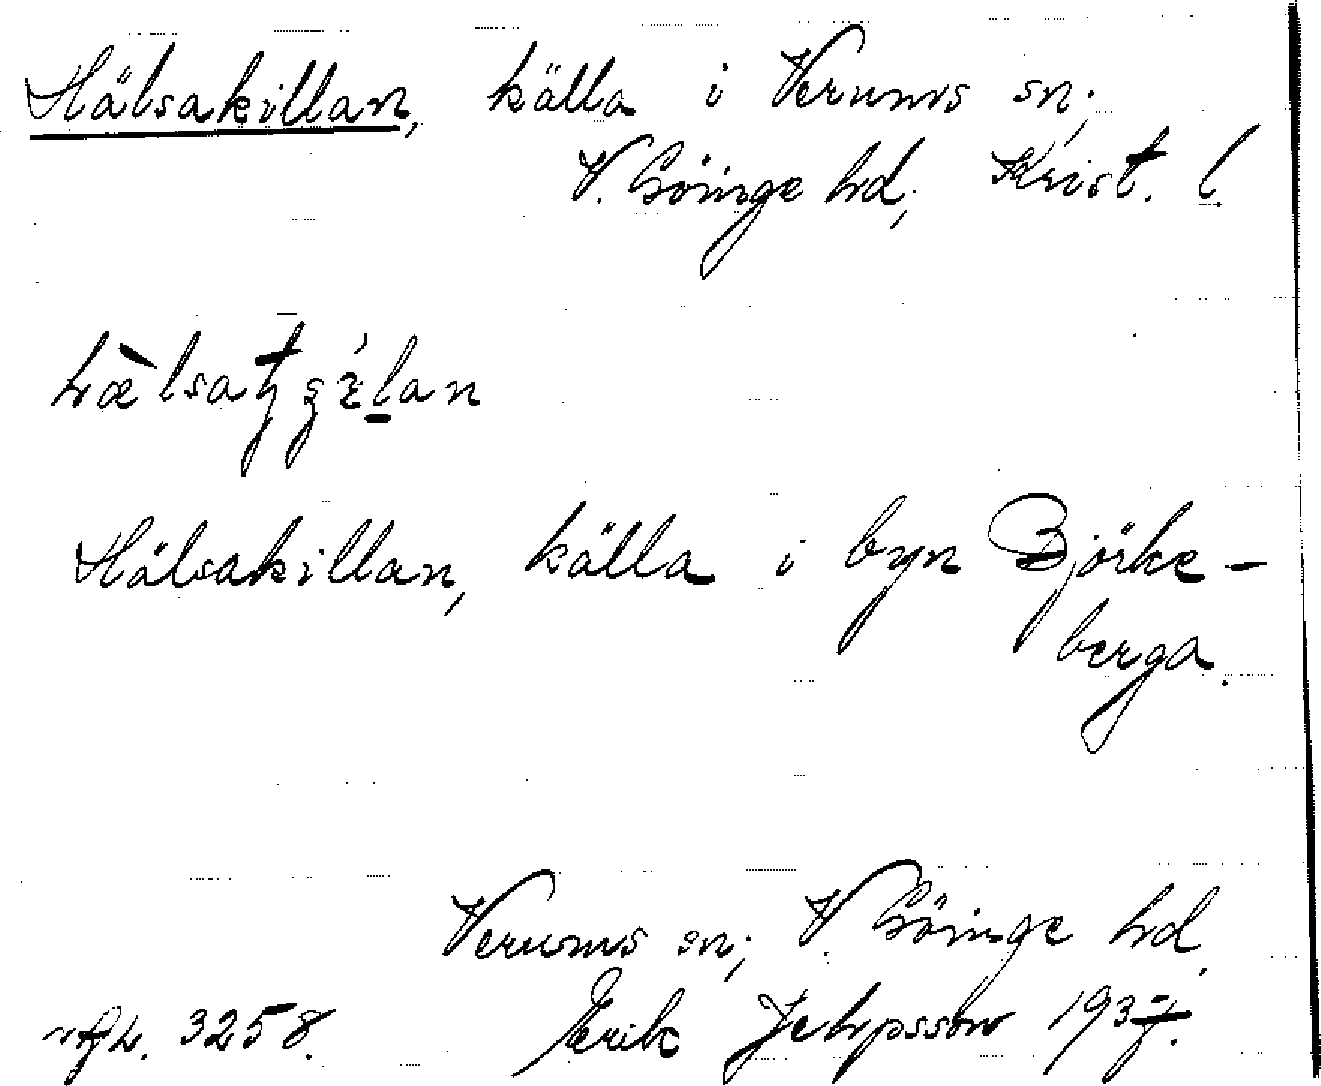 Hälsakillan, källa i Verums sn;
V. Göinge hd; Krist. l.
Hälsakillan, källa i byn Björke-
berga.
Verums sn; V. Göinge hd.
3258. Erik 1937.